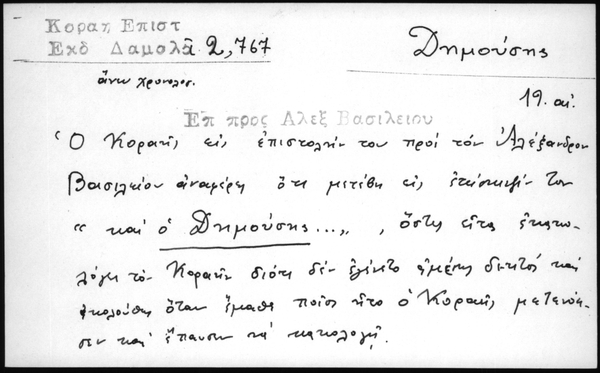 Κοραῆ Επιστ
Εκδ Δαμαλᾶ 2,767
Δημούσης
ἄνευ χρονολογ.
19. αἰ.
Επ προς Αλεξ Βασιλειου
Ὁ Κοραῆς εἰς ἐπιστολήν του πρός τόν Ἀλέξανδρον
Βασιλείου ἀναφέρει ὅτι μετέβη εἰς ἐπίσκεψίν του
"καί ὁ Δημούσης...", ὅστις εἶτα ἐκατη-
λόγει τόν Κοραῆν διότι δέν ἐγένετο ἀμέσως δεκτός καί
ἀκολούθως ὅταν ἔμαθε ποῖος ἦτο ὁ Κοραῆς μετενόη-
σεν καί ἔπαυσε νά κακολογῇ.